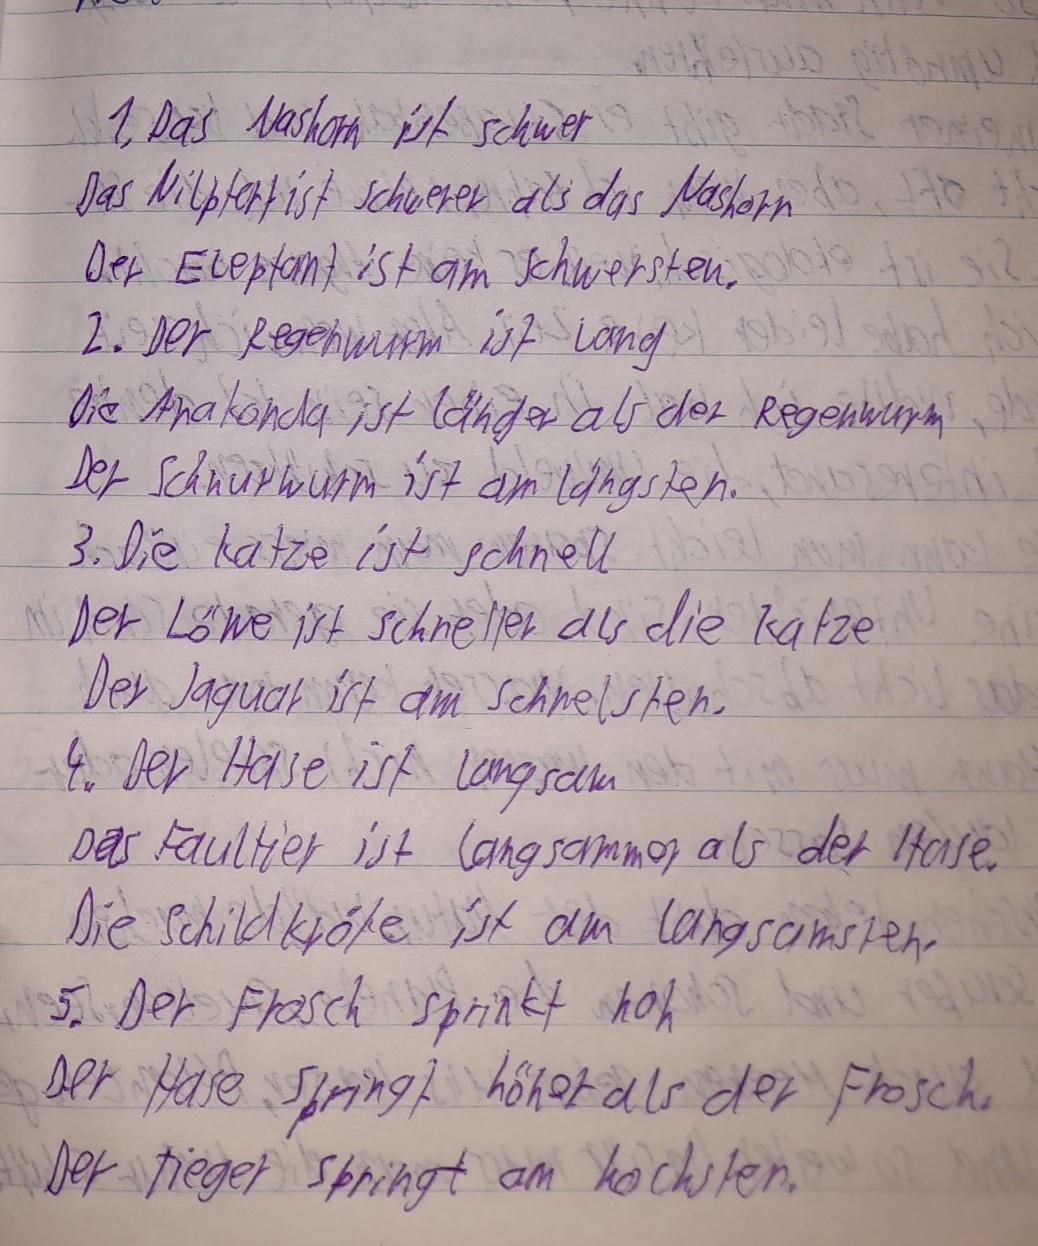 1. Das Nashorn ist schwer
Das Nilpferf ist schwerer als das Nashorn
Der Eleptant ist am schwersten.
2. Der Regenwurm ist lang
Die Anakonda ist länger als der Regenwurm
Der Schnurwurm ist am längsten.
3. Die katze ist schnell
Der Löwe ist schneller als die katze
Der Jaguar ist am schnelsten.
4. Der Hase ist langsam
Das Faultier ist langsammer als der Hase.
Die Schildkröte ist am langsamsten.
5. Der Frosch sprinkt hoh
Der Hase springt höher als der Frosch.
Der tieger springt am hochsten.